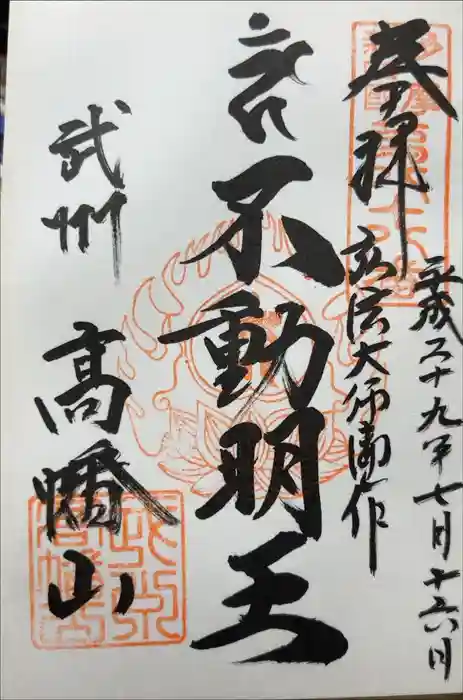 奉拝
平成二十九年七月十六日
弘法大师御作
不動明王
武州
高幡山